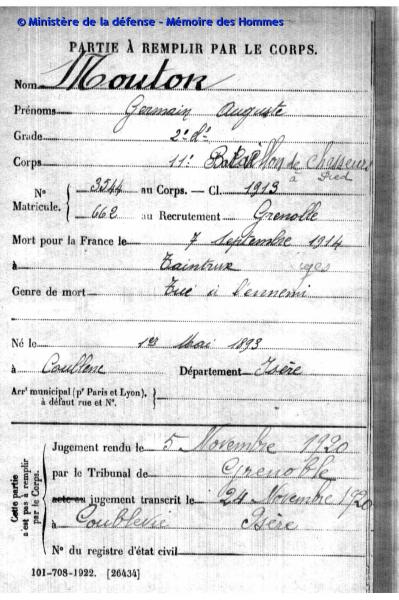 © Ministère de la défense - Mémoire des Hommes
PARTIE À REMPLIR PAR LE CORPS.
Nom Mouton
Prénoms Germain Auguste
Grade 2e cl.
Corps 11e Bataillon de Chasseurs
à Pied
No Matricule. { 3544 au Corps. — Cl. 1913
662 au Recrutement Grenoble
Mort pour la France le 7 Septembre 1914
à Taintrux
Genre de mort Tué à l'ennemi
Né le 1er Mai 1893
à Coublevie Département Isère
Arrt municipal (pr Paris et Lyon),
à défaut rue et No.
Cette partie
n'est pas à remplir
par le Corps.
Jugement rendu le 5 Novembre 1920
par le Tribunal de Grenoble
acte ou jugement transcrit le 24 Novembre 1920
à Coublevie Isère
No du registre d'état civil
101-708-1922. [26434]